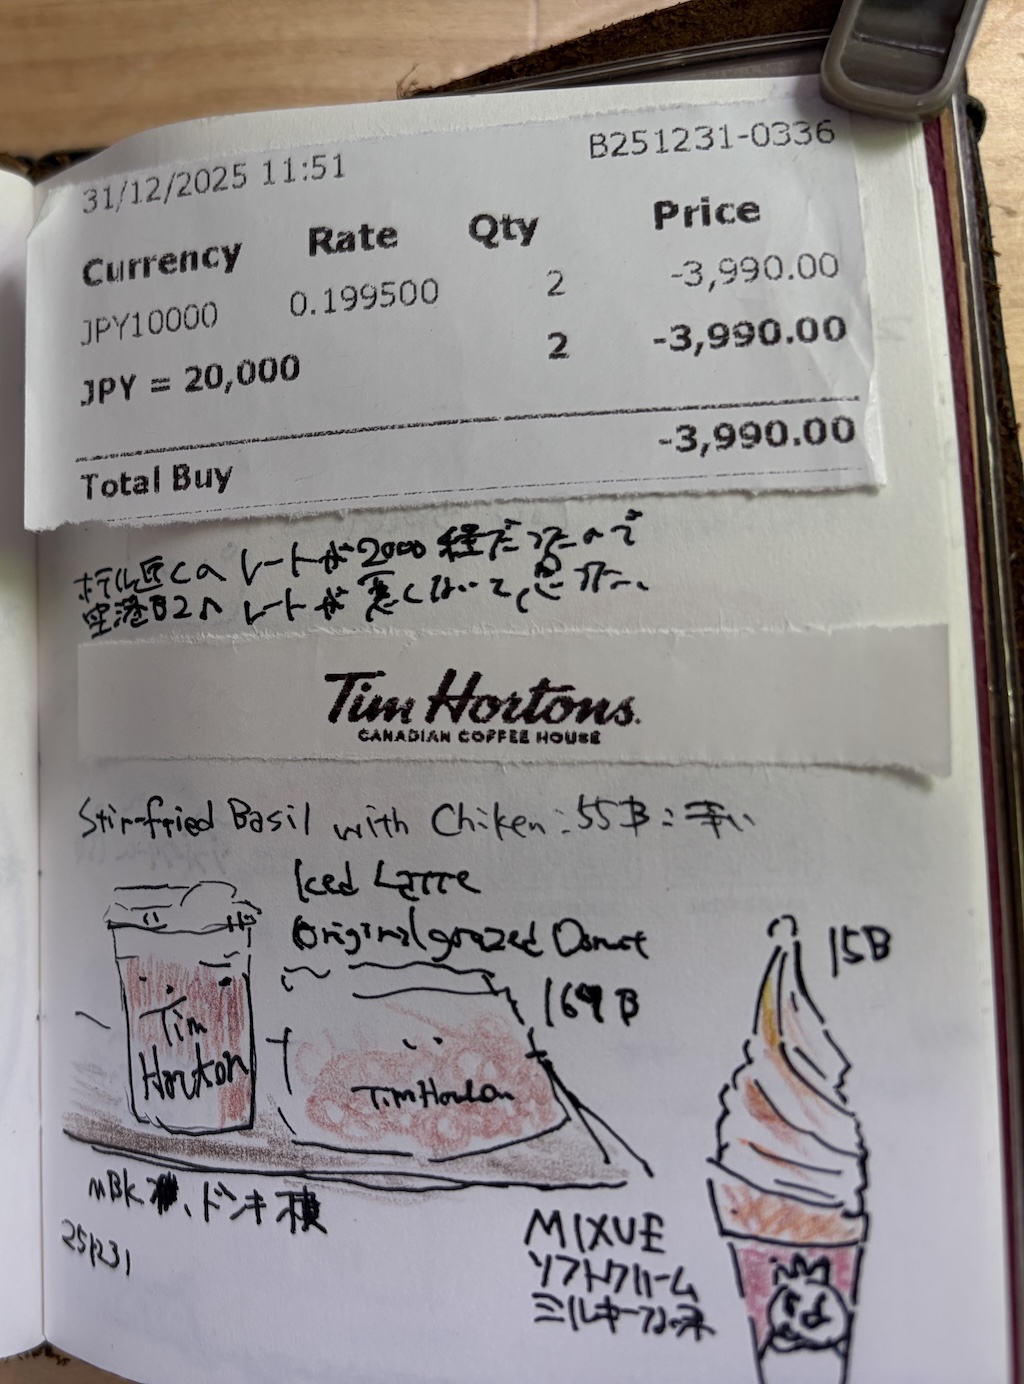 31/12/2025 11:51 B251231-0336
Currency Rate Qty Price
JPY10000 0.199500 2 -3,990.00
JPY = 20,000 2 -3,990.00
Total Buy -3,990.00
ホテル近くの レートが2000
空港B2の レートが 悪くない
Tim Hortons.
CANADIAN COFFEE HOUSE
Stir-fried Basil with Chiken: 55฿: 辛い
Iced Latte
Original grazed Donut
169฿
Tim
Horton
Tim Horton
15฿
MBK ドンキ横
251231
MIXUE
ソフトクリーム
ミルキーな味